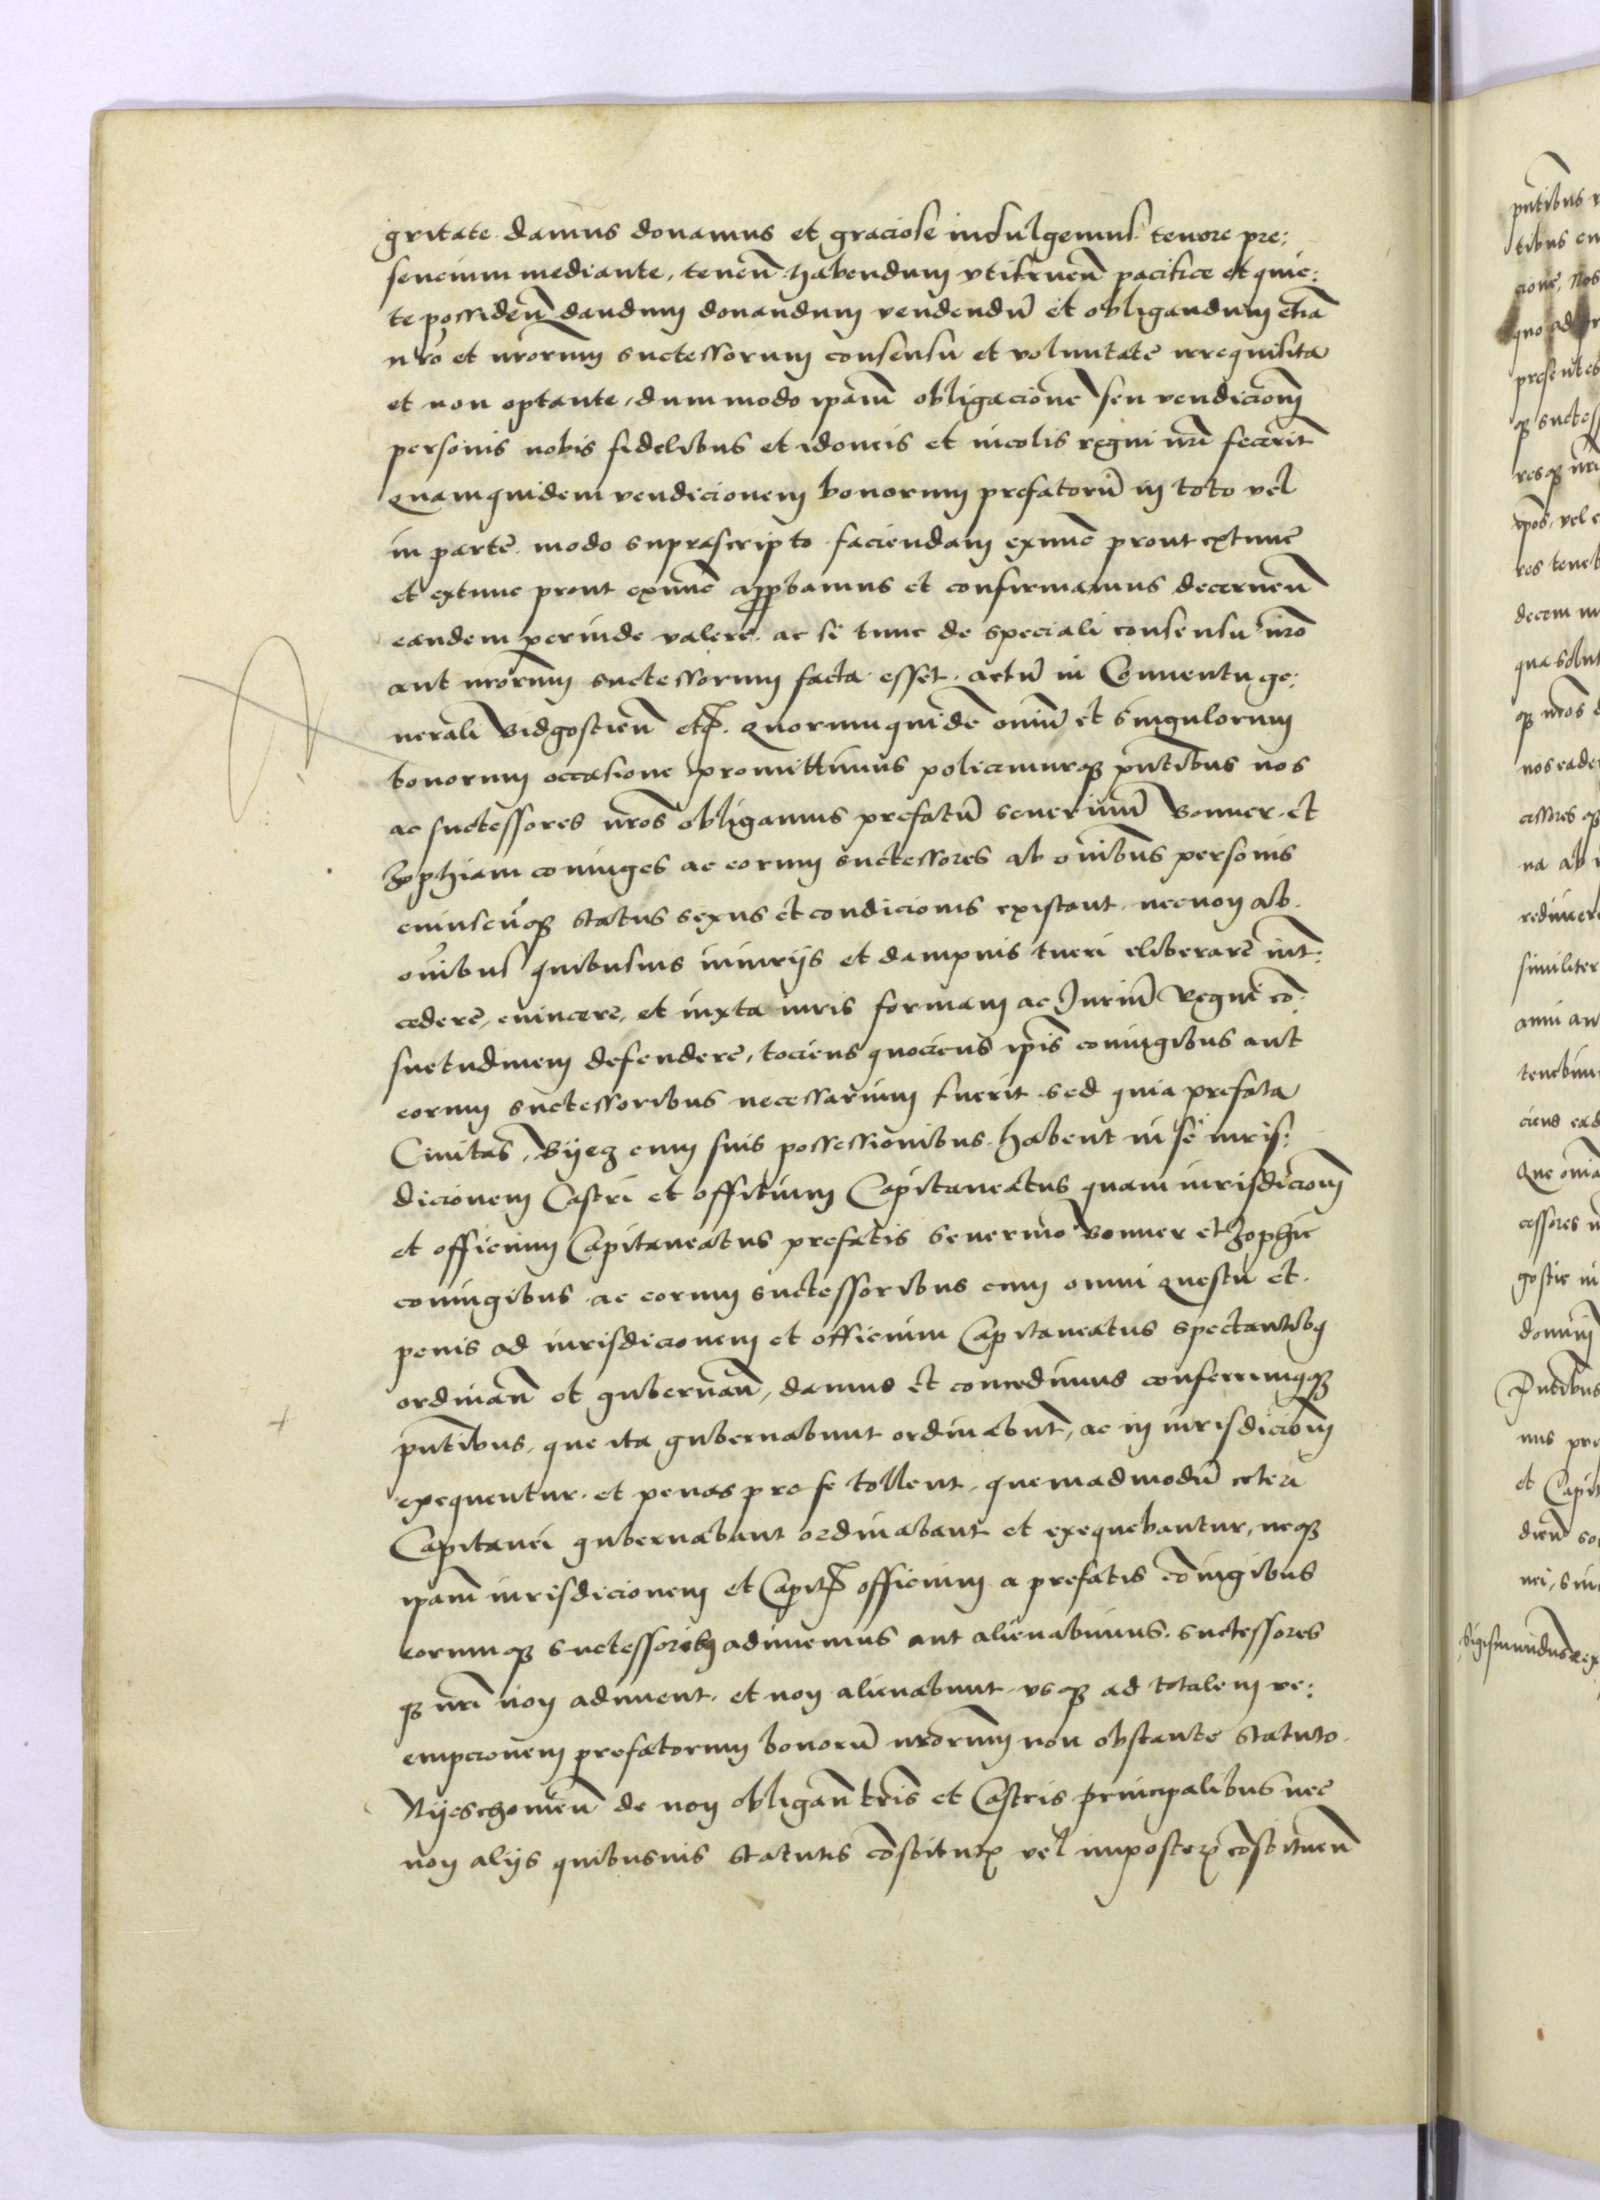 gritate damus donamus et graciose indulgemus tenore pre:
sencium mediante, tenen̄ habendum vtifruen̄ pacifice et quie:
te possiden̄ dandum donandum vendendū et obligandum etiā
nr̄o et nr̄orum successorum consensu et voluntate irrequisita
et non optante, dummodo ip̄am obligacionē seu vendicion̄
personis nobis fidelibus et idoneis et incolis regni nr̄i fecerit
Quamquidem vendicionem bonorum prefatorū in toto vel
in parte modo suprascripto faciendam exnunc prout extunc
et extunc prout exnunc app̄bamus et confirmamus decernen̄
eandem perinde valere ac si tunc de speciali consensu nr̄o
aut nr̄orum successorum facta esset. actū in Conuentu ge:
nerali Bidgostien̄ etc̄. Quorumquidē om̄iū et singulorum
bonorum occasione promittimus policemurq3 pn̄tibus nos
ac successores nr̄os obligamus prefatū seuerinū Bonner et
Zophiam coniuges ac eorum successores ab om̄ibus personis
cuiuscūq3 status sexus et condicionis existant necnon ab
om̄ibus quibusuis iniurijs et dampnis tueri eliberare int̄:
cedere, euincere, et iuxta iuris formam ac Juriū Regni cō:
suetudinem defendere, tociens quociens ip̄is coniugibus aut
eorum successoribus necessarium fuerit sed quia prefata
Ciuitas, Byecz cum suis possessionibus habent in se iuris:
dicionem Castri et officium Capitaneatus quam iurisdicion̄
et officium Capitaneatus prefatis Seuerino Bonner et Zophie
coniugibus ac eorum successoribus cum omni questu et
penis ad iurisdicionem et officium Capitaneatus spectantibq
ordinan̄ et gubernan̄, damus et concedimus conferrimusq3
pn̄tibus, que ita gubernabunt ordinabūt, ac in iurisdicion̄
exequentur et penas pro se tollent quemadmodū ceteri
Capitanei gubernabant ordinabant et exequebantur, neq3
ip̄am iurisdicionem et Capit̄ officium a prefatis cōiugibus
eorumq3 successoribq adimemus aut alienabimus successores
q3 nr̄i non adiment et non alienabunt vsq3 ad totalem re:
empcionem prefatorum bonorū nr̄orum non obstante statuto
Nijeschouien̄ de non obligan̄ tr̄is et Castris principalibus nec
non alijs quibusuis statutis cōstitutꝭ vel imposterꝭ cōstituen̄